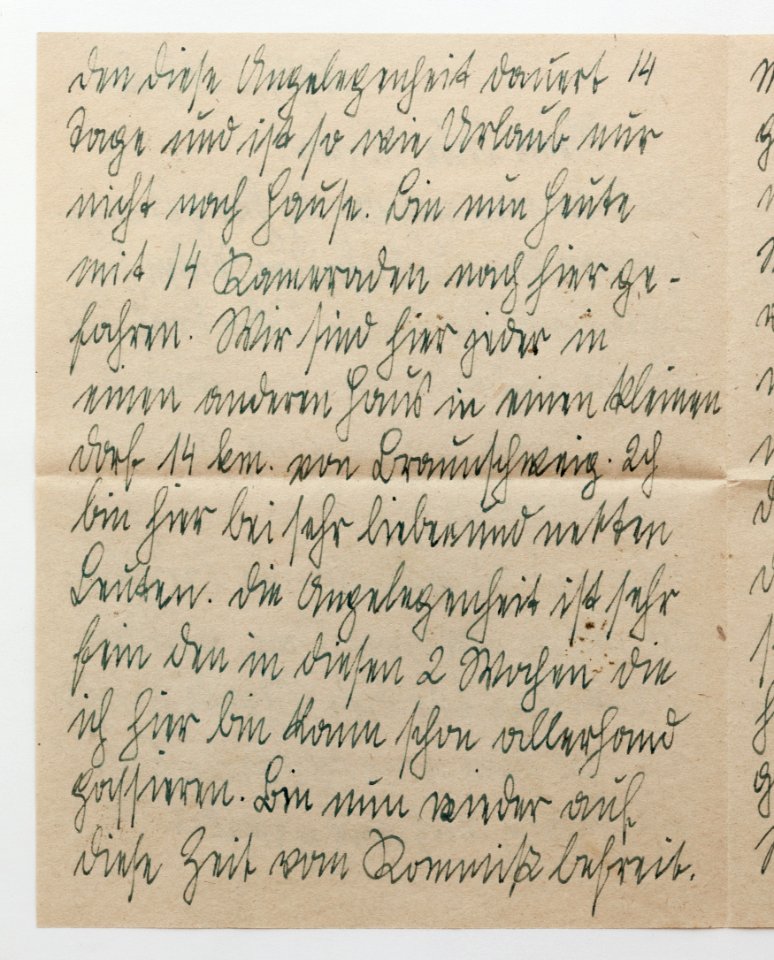 den diese Angelegenheit dauert 14
Tage und ist so wie Urlaub nur
nicht nach Hause. Bin nun heute
mit 14 Kameraden nach hier ge-
fahren. Wir sind hier jeder in
einen anderen Haus in einen kleinen
Dorf 14 km. von Braunschweig. Ich
bin hier bei sehr lieben und netten
Leuten. Die Angelegenheit ist sehr
fein den in diesen 2 Wochen die
ich hier bin kann schon allerhand
passieren. Bin nun wieder auf
diese Zeit vom Kommiß befreit.